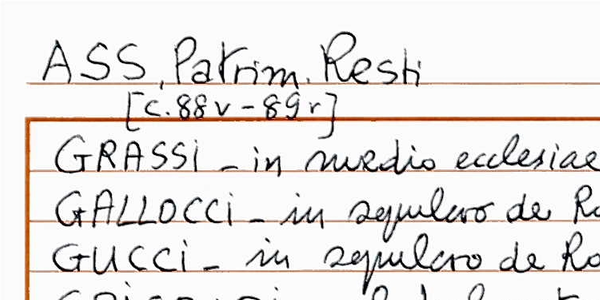 ASS, Patrim. Resti
[c. 88v - 89r]
GRASSI - in medio ecclesiae
GALLOCCI - in sepulcro de
GUCCI - in sepulcro de